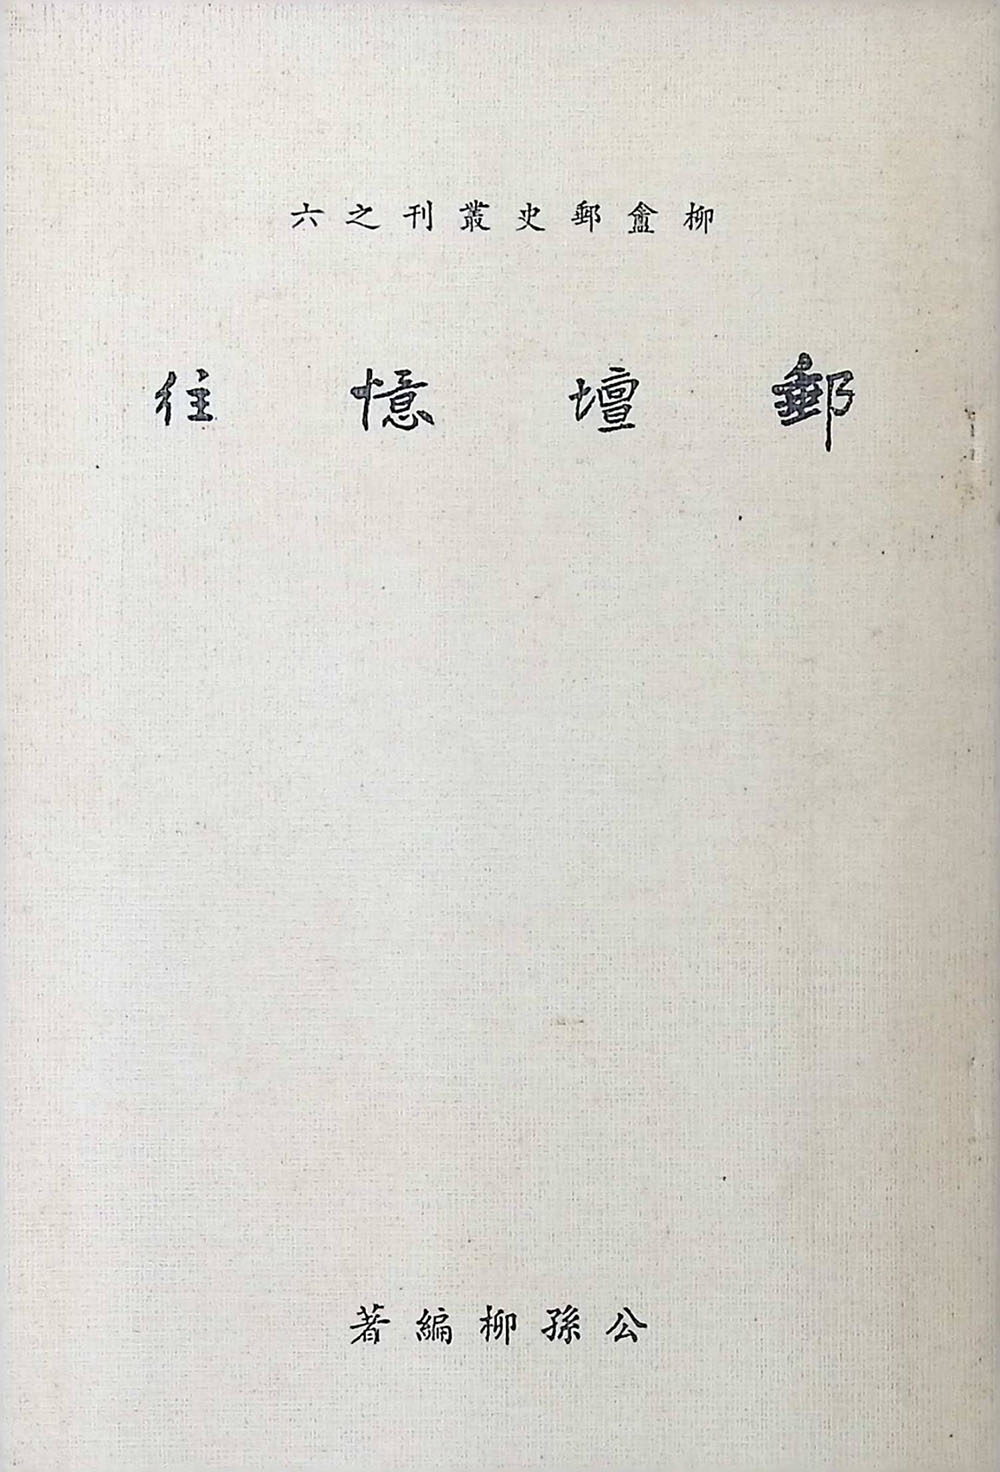 柳盦郵史叢刊之六
郵壇憶往
公孫柳編著